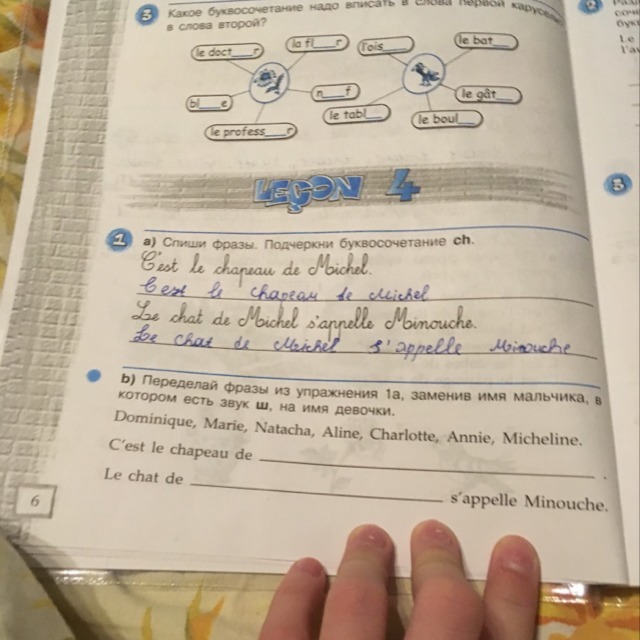 3 Какое буквосочетание надо вписать в слова первой карусели
в слова второй?
le doct___r
la fl___r
l'ois___
le bat___
bl___e
n___f
le gât___
le profess___r
le tabl___
le boul___
LEÇON 4
1 a) Спиши фразы. Подчеркни буквосочетание ch.
C'est le chapeau de Michel.
C'est le chapeau de Michel
Le chat de Michel s'appelle Minouche.
Le chat de Michel s'appelle Minouche
5
b) Переделай фразы из упражнения 1a, заменив имя мальчика, в
котором есть звук ш, на имя девочки.
Dominique, Marie, Natacha, Aline, Charlotte, Annie, Micheline.
C'est le chapeau de ___.
Le chat de ___ s'appelle Minouche.
6